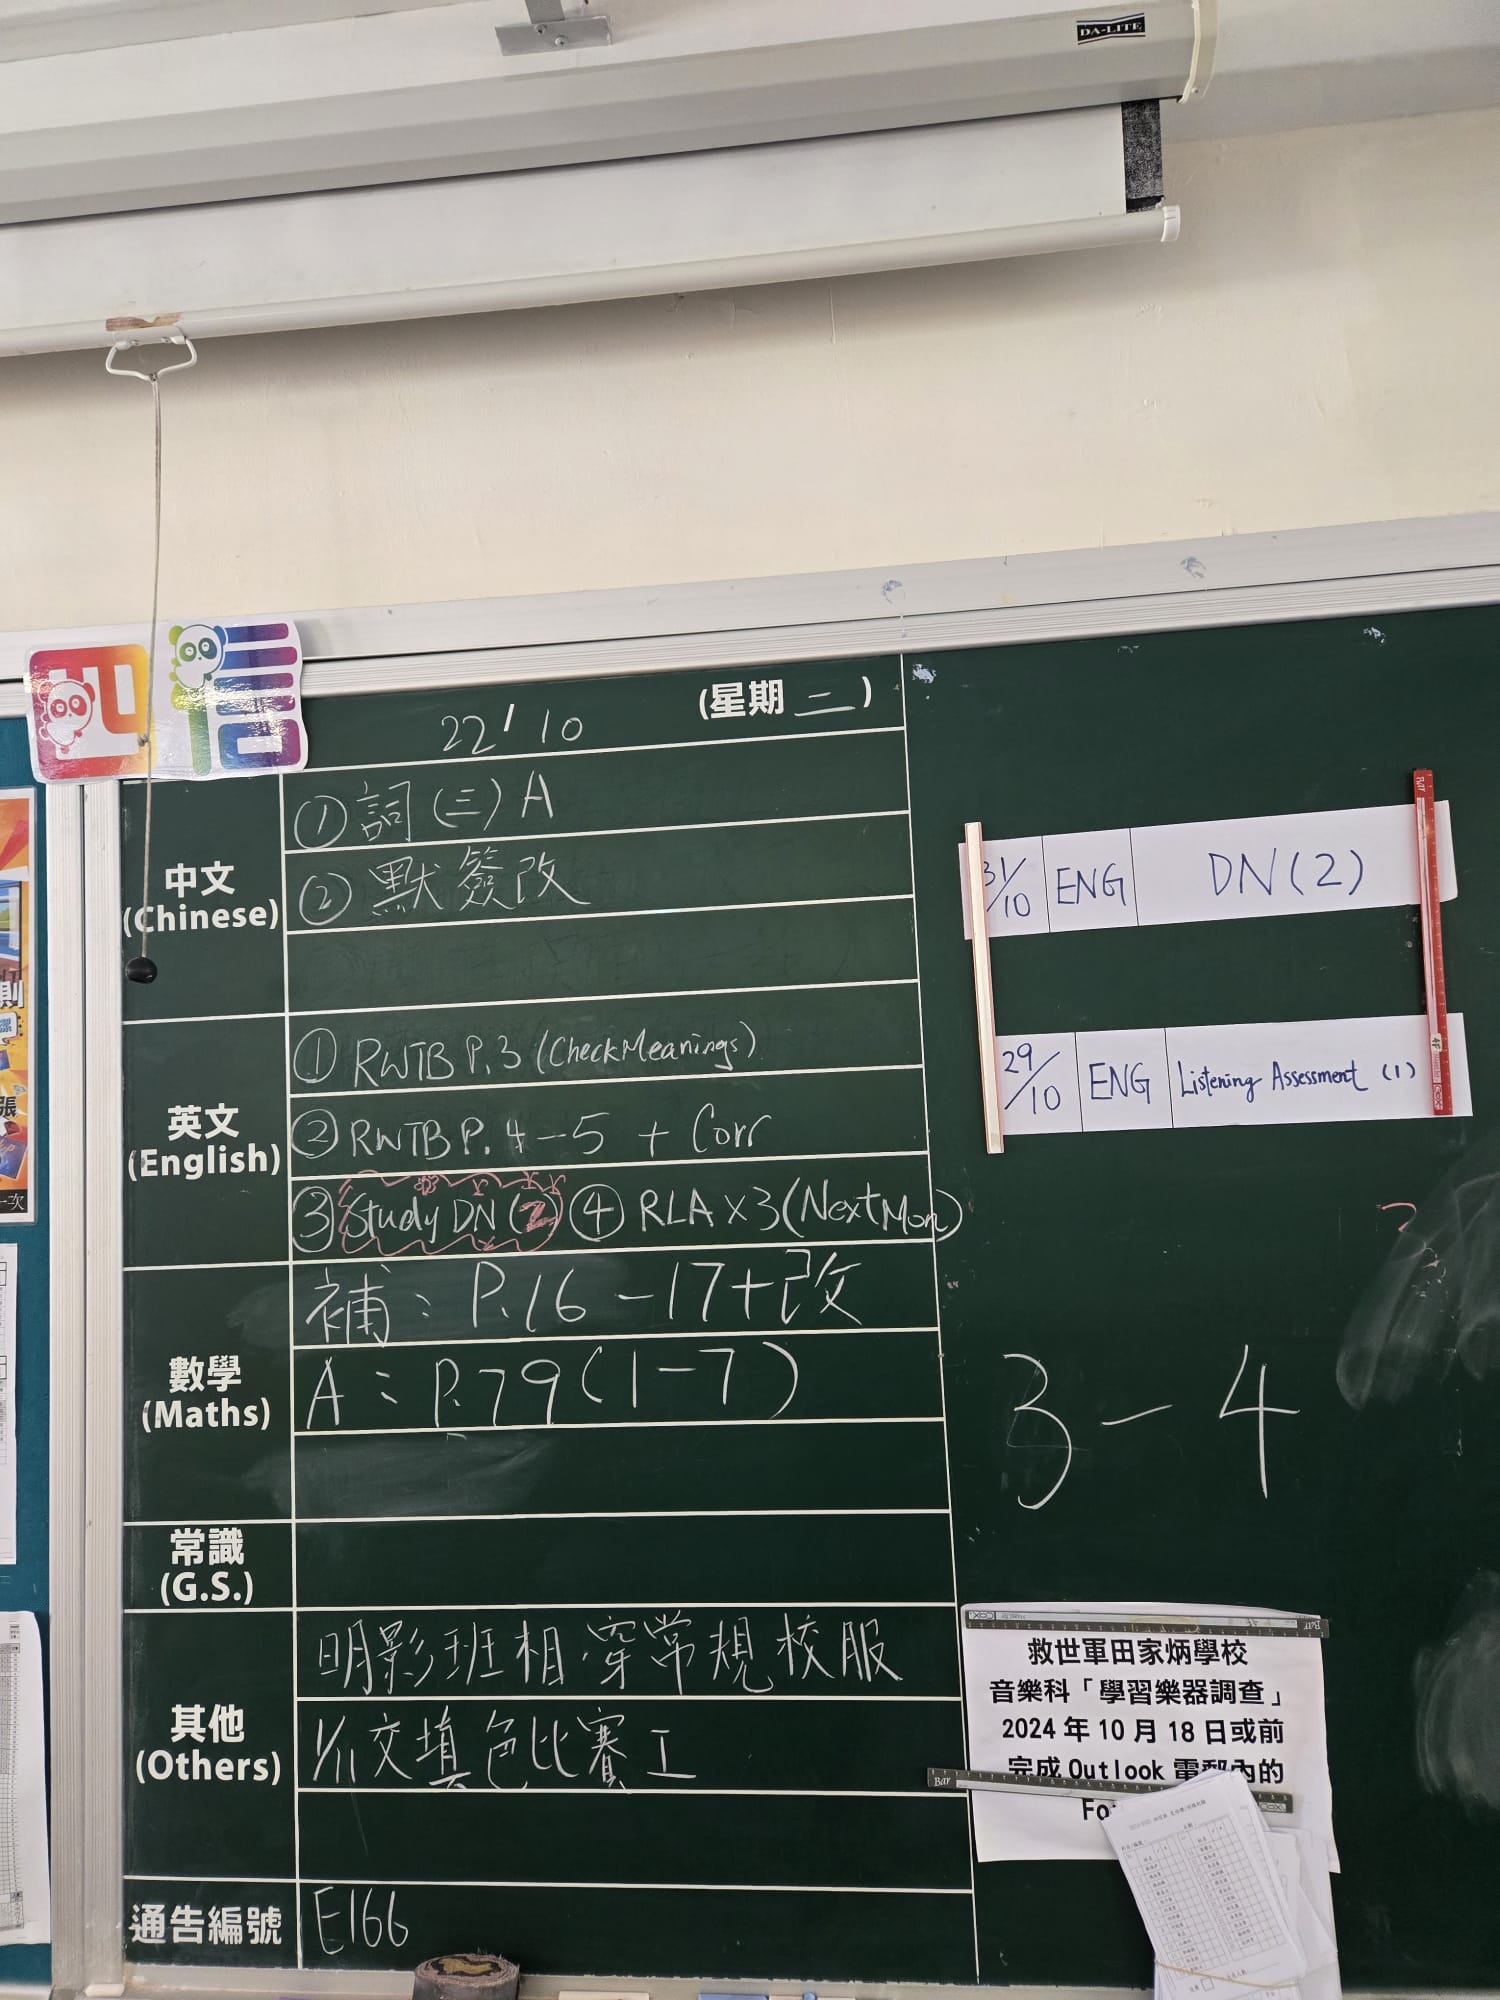 DA-LITE
四信
22/10 (星期二)
中文
(Chinese)
①詞(三)A
②默簽改
英文
(English)
①RWTB P.3 (Check Meanings)
②RWTB P.4-5 + Corr
③Study DN(2) ④RLA×3(Next Mon)
數學
(Maths)
補:P.16-17+改
A:P.79(1-7)
常識
(G.S.)
其他
(Others)
明影班相.穿常規校服
1/11交填色比賽工
通告編號
E166
31/10 ENG DN(2)
29/10 ENG Listening Assessment (1)
3-4
救世軍田家炳學校
音樂科「學習樂器調查」
2024年10月18日或前
完成Outlook電郵內的
Fo